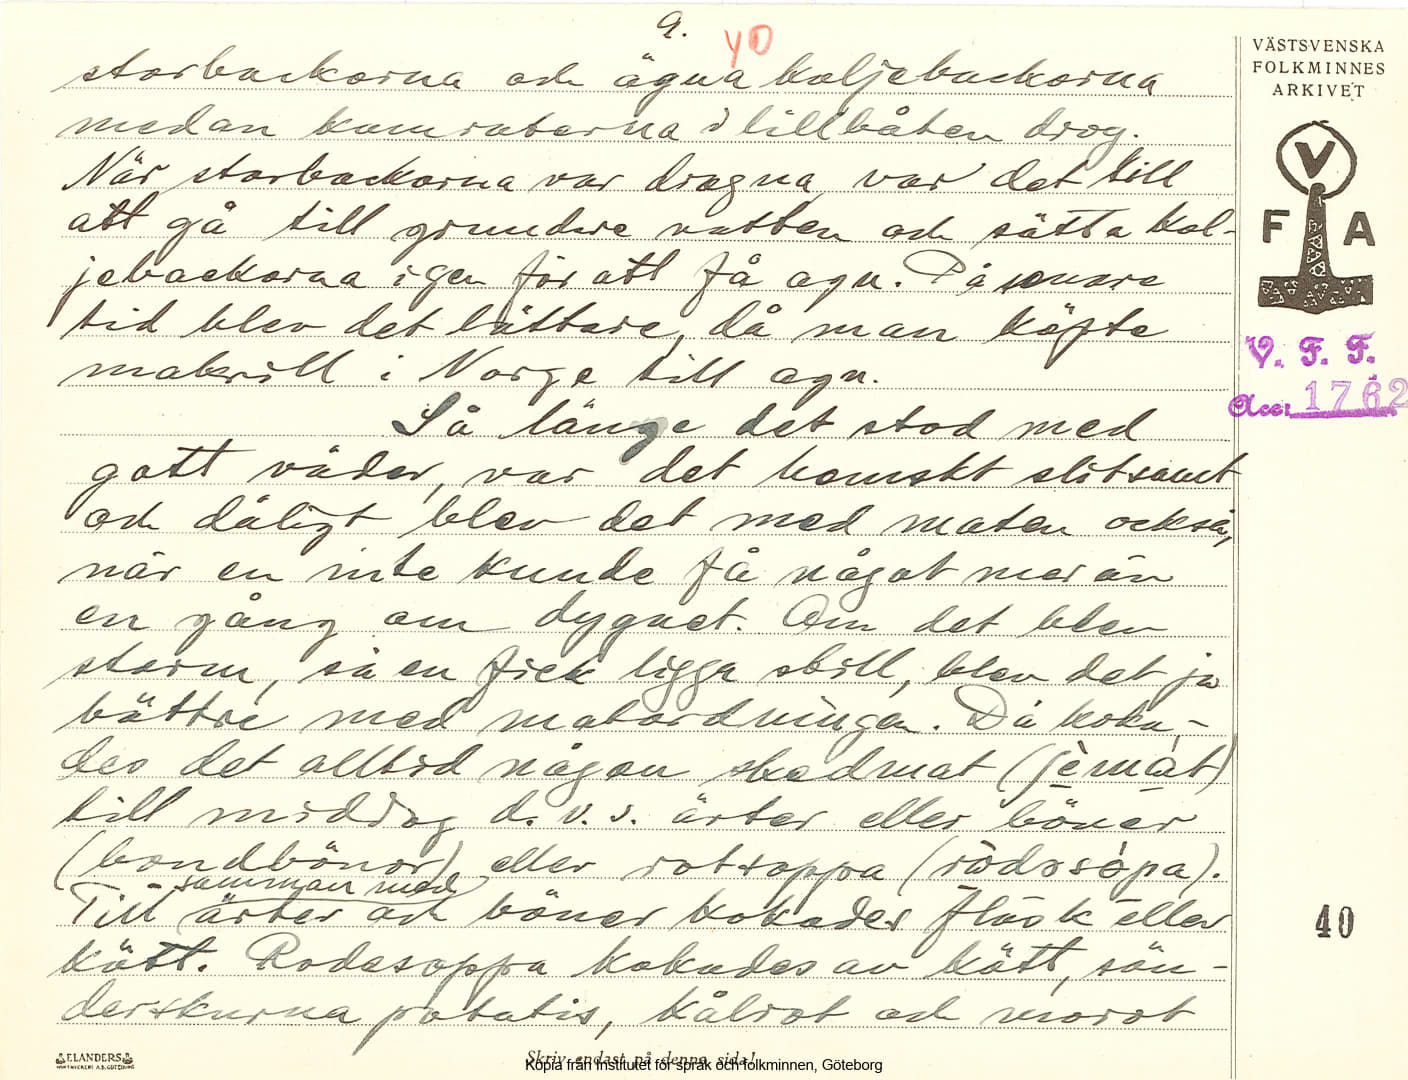 9.
40
storbackorna och ägna koljebackorna
medan kamraterna i lillbåten drog.
När storbackorna var dragna var det till
att gå till grundare vatten och sätta kol-
jebackorna igen för att få agn. På senare
tid blev det lättare, då man köpte
makrill i Norge till agn.
Så länge det stod med
gott väder, var det hemskt slitsamt
och dåligt blev det med maten också,
när en inte kunde få något mer än
en gång om dygnet. Om det blev
storm, så en fick ligga still, blev det ju
bättre med matordningen. Då koka-
des det alltid någon skedmat (jèmat)
till middag d.v.s. ärter eller böner
(bondbönor) eller rotsoppa (
samman med
Till ärter och böner kokades fläsk eller
kött. Rodesoppa kokades av kött, sön-
derskurna potatis, kålrot och morot
VÄSTSVENSKA
FOLKMINNES
ARKIVET
V
F A
V. F. F.
Acc: 1762
40
ELANDERS
Skriv endast på denna sida!
Kopia från Institutet för språk och folkminnen, Göteborg